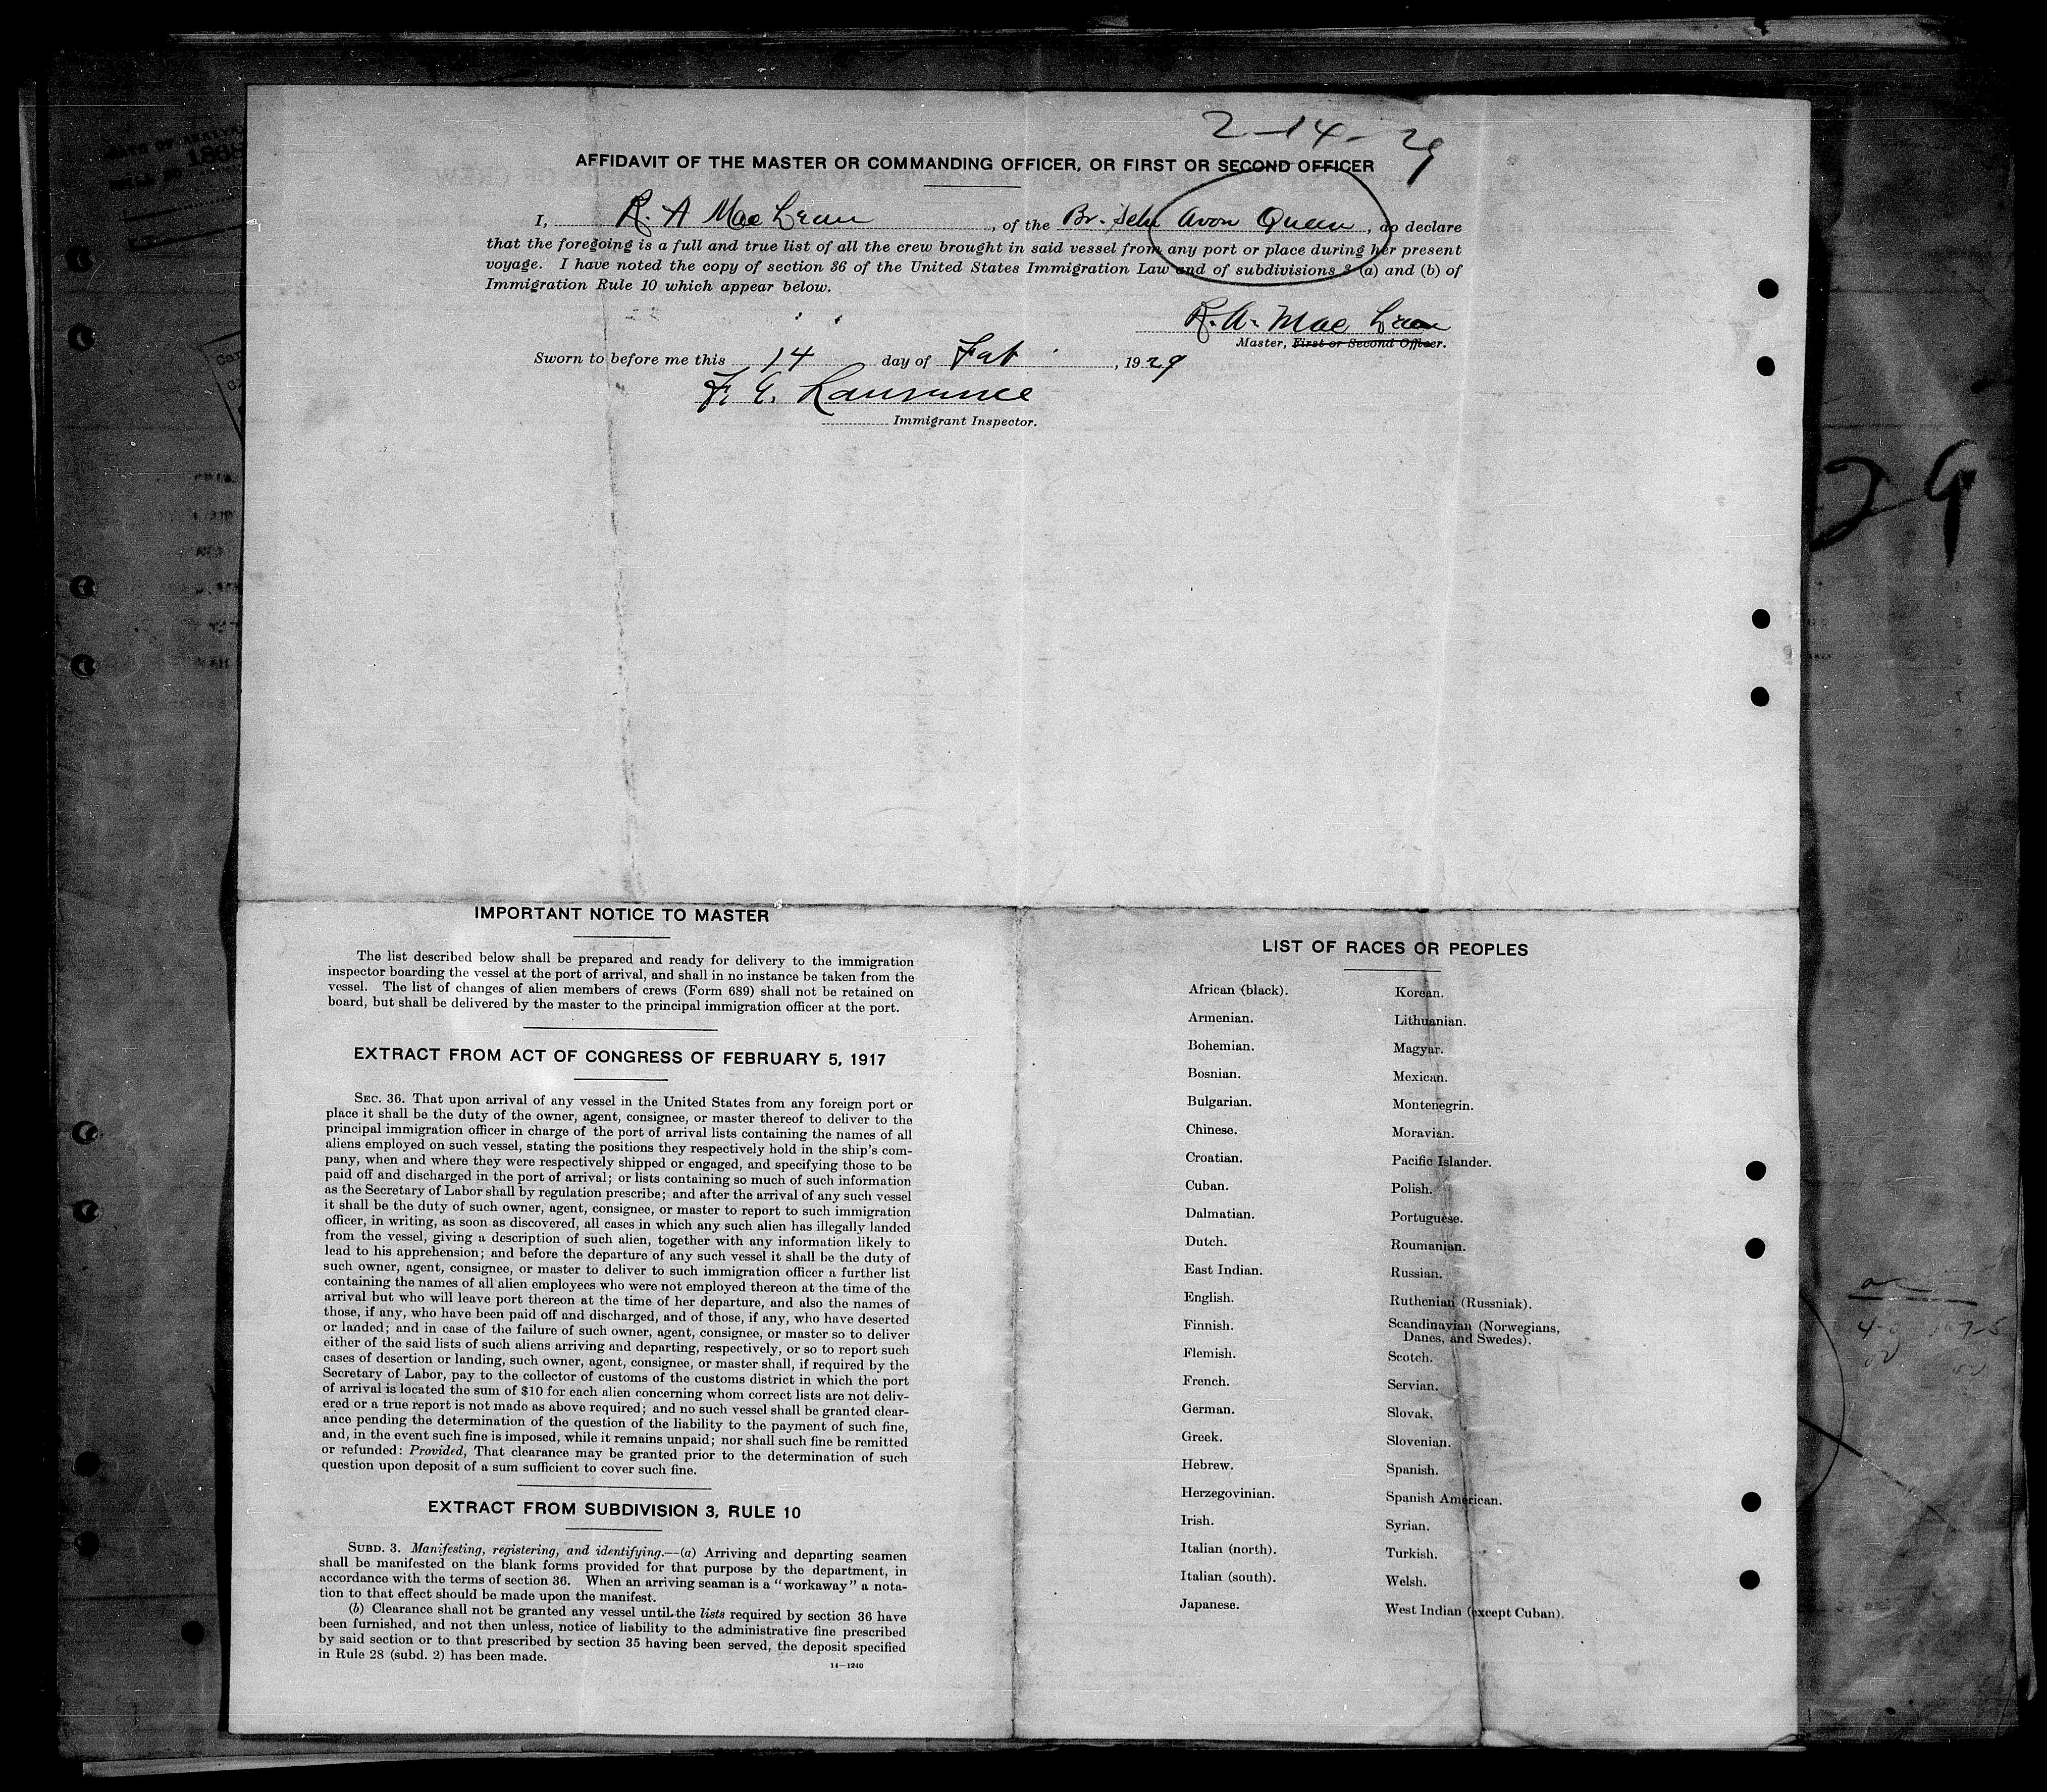 2-14-29
AFFIDAVIT OF THE MASTER OR COMMANDING OFFICER, OR FIRST OR SECOND OFFICER
I, R. A MacLean, of the Br. Schr Avon Queen, do declare
that the foregoing is a full and true list of all the crew brought in said vessel from any port or place during her present
voyage. I have noted the copy of section 36 of the United States Immigration Law and of subdivisions 3 (a) and (b) of
Immigration Rule 10 which appear below.
R. A. MacLean
Master, First or Second Officer.
Sworn to before me this 14 day of Feb, 1929
F. E. Lawrence
Immigrant Inspector.
29
IMPORTANT NOTICE TO MASTER
The list described below shall be prepared and ready for delivery to the immigration
inspector boarding the vessel at the port of arrival, and shall in no instance be taken from the
vessel. The list of changes of alien members of crews (Form 689) shall not be retained on
board, but shall be delivered by the master to the principal immigration officer at the port.
EXTRACT FROM ACT OF CONGRESS OF FEBRUARY 5, 1917
SEC. 36. That upon arrival of any vessel in the United States from any foreign port or
place it shall be the duty of the owner, agent, consignee, or master thereof to deliver to the
principal immigration officer in charge of the port of arrival lists containing the names of all
aliens employed on such vessel, stating the positions they respectively hold in the ship's com-
pany, when and where they were respectively shipped or engaged, and specifying those to be
paid off and discharged in the port of arrival; or lists containing so much of such information
as the Secretary of Labor shall by regulation prescribe; and after the arrival of any such vessel
it shall be the duty of such owner, agent, consignee, or master to report to such immigration
officer, in writing, as soon as discovered, all cases in which any such alien has illegally landed
from the vessel, giving a description of such alien, together with any information likely to
lead to his apprehension; and before the departure of any such vessel it shall be the duty of
such owner, agent, consignee, or master to deliver to such immigration officer a further list
containing the names of all alien employees who were not employed thereon at the time of the
arrival but who will leave port thereon at the time of her departure, and also the names of
those, if any, who have been paid off and discharged, and of those, if any, who have deserted
or landed; and in case of the failure of such owner, agent, consignee, or master so to deliver
either of the said lists of such aliens arriving and departing, respectively, or so to report such
cases of desertion or landing, such owner, agent, consignee, or master shall, if required by the
Secretary of Labor, pay to the collector of customs of the customs district in which the port
of arrival is located the sum of $10 for each alien concerning whom correct lists are not deliv-
ered or a true report is not made as above required; and no such vessel shall be granted clear-
ance pending the determination of the question of the liability to the payment of such fine,
and, in the event such fine is imposed, while it remains unpaid; nor shall such fine be remitted
or refunded: Provided, That clearance may be granted prior to the determination of such
question upon deposit of a sum sufficient to cover such fine.
EXTRACT FROM SUBDIVISION 3, RULE 10
SUBD. 3. Manifesting, registering, and identifying.—(a) Arriving and departing seamen
shall be manifested on the blank forms provided for that purpose by the department, in
accordance with the terms of section 36. When an arriving seaman is a "workaway" a nota-
tion to that effect should be made upon the manifest.
(b) Clearance shall not be granted any vessel until the lists required by section 36 have
been furnished, and not then unless, notice of liability to the administrative fine prescribed
by said section or to that prescribed by section 35 having been served, the deposit specified
in Rule 28 (subd. 2) has been made.
14—1240
LIST OF RACES OR PEOPLES
African (black).
Armenian.
Bohemian.
Bosnian.
Bulgarian.
Chinese.
Croatian.
Cuban.
Dalmatian.
Dutch.
East Indian.
English.
Finnish.
Flemish.
French.
German.
Greek.
Hebrew.
Herzegovinian.
Irish.
Italian (north).
Italian (south).
Japanese.
Korean.
Lithuanian.
Magyar.
Mexican.
Montenegrin.
Moravian.
Pacific Islander.
Polish.
Portuguese.
Roumanian.
Russian.
Ruthenian (Russniak).
Scandinavian (Norwegians,
Danes, and Swedes).
Scotch.
Servian.
Slovak.
Slovenian.
Spanish.
Spanish American.
Syrian.
Turkish.
Welsh.
West Indian (except Cuban).